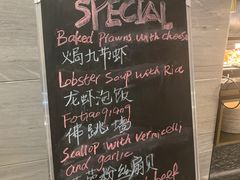 SPECIAL
Baked Prawns with cheese
焗九节虾
Lobster Soup with Rice
龙虾泡饭
Fotiaoqiang
佛跳墙
Scallop with Vermicelli
and garlic
粉丝扇贝
Beef